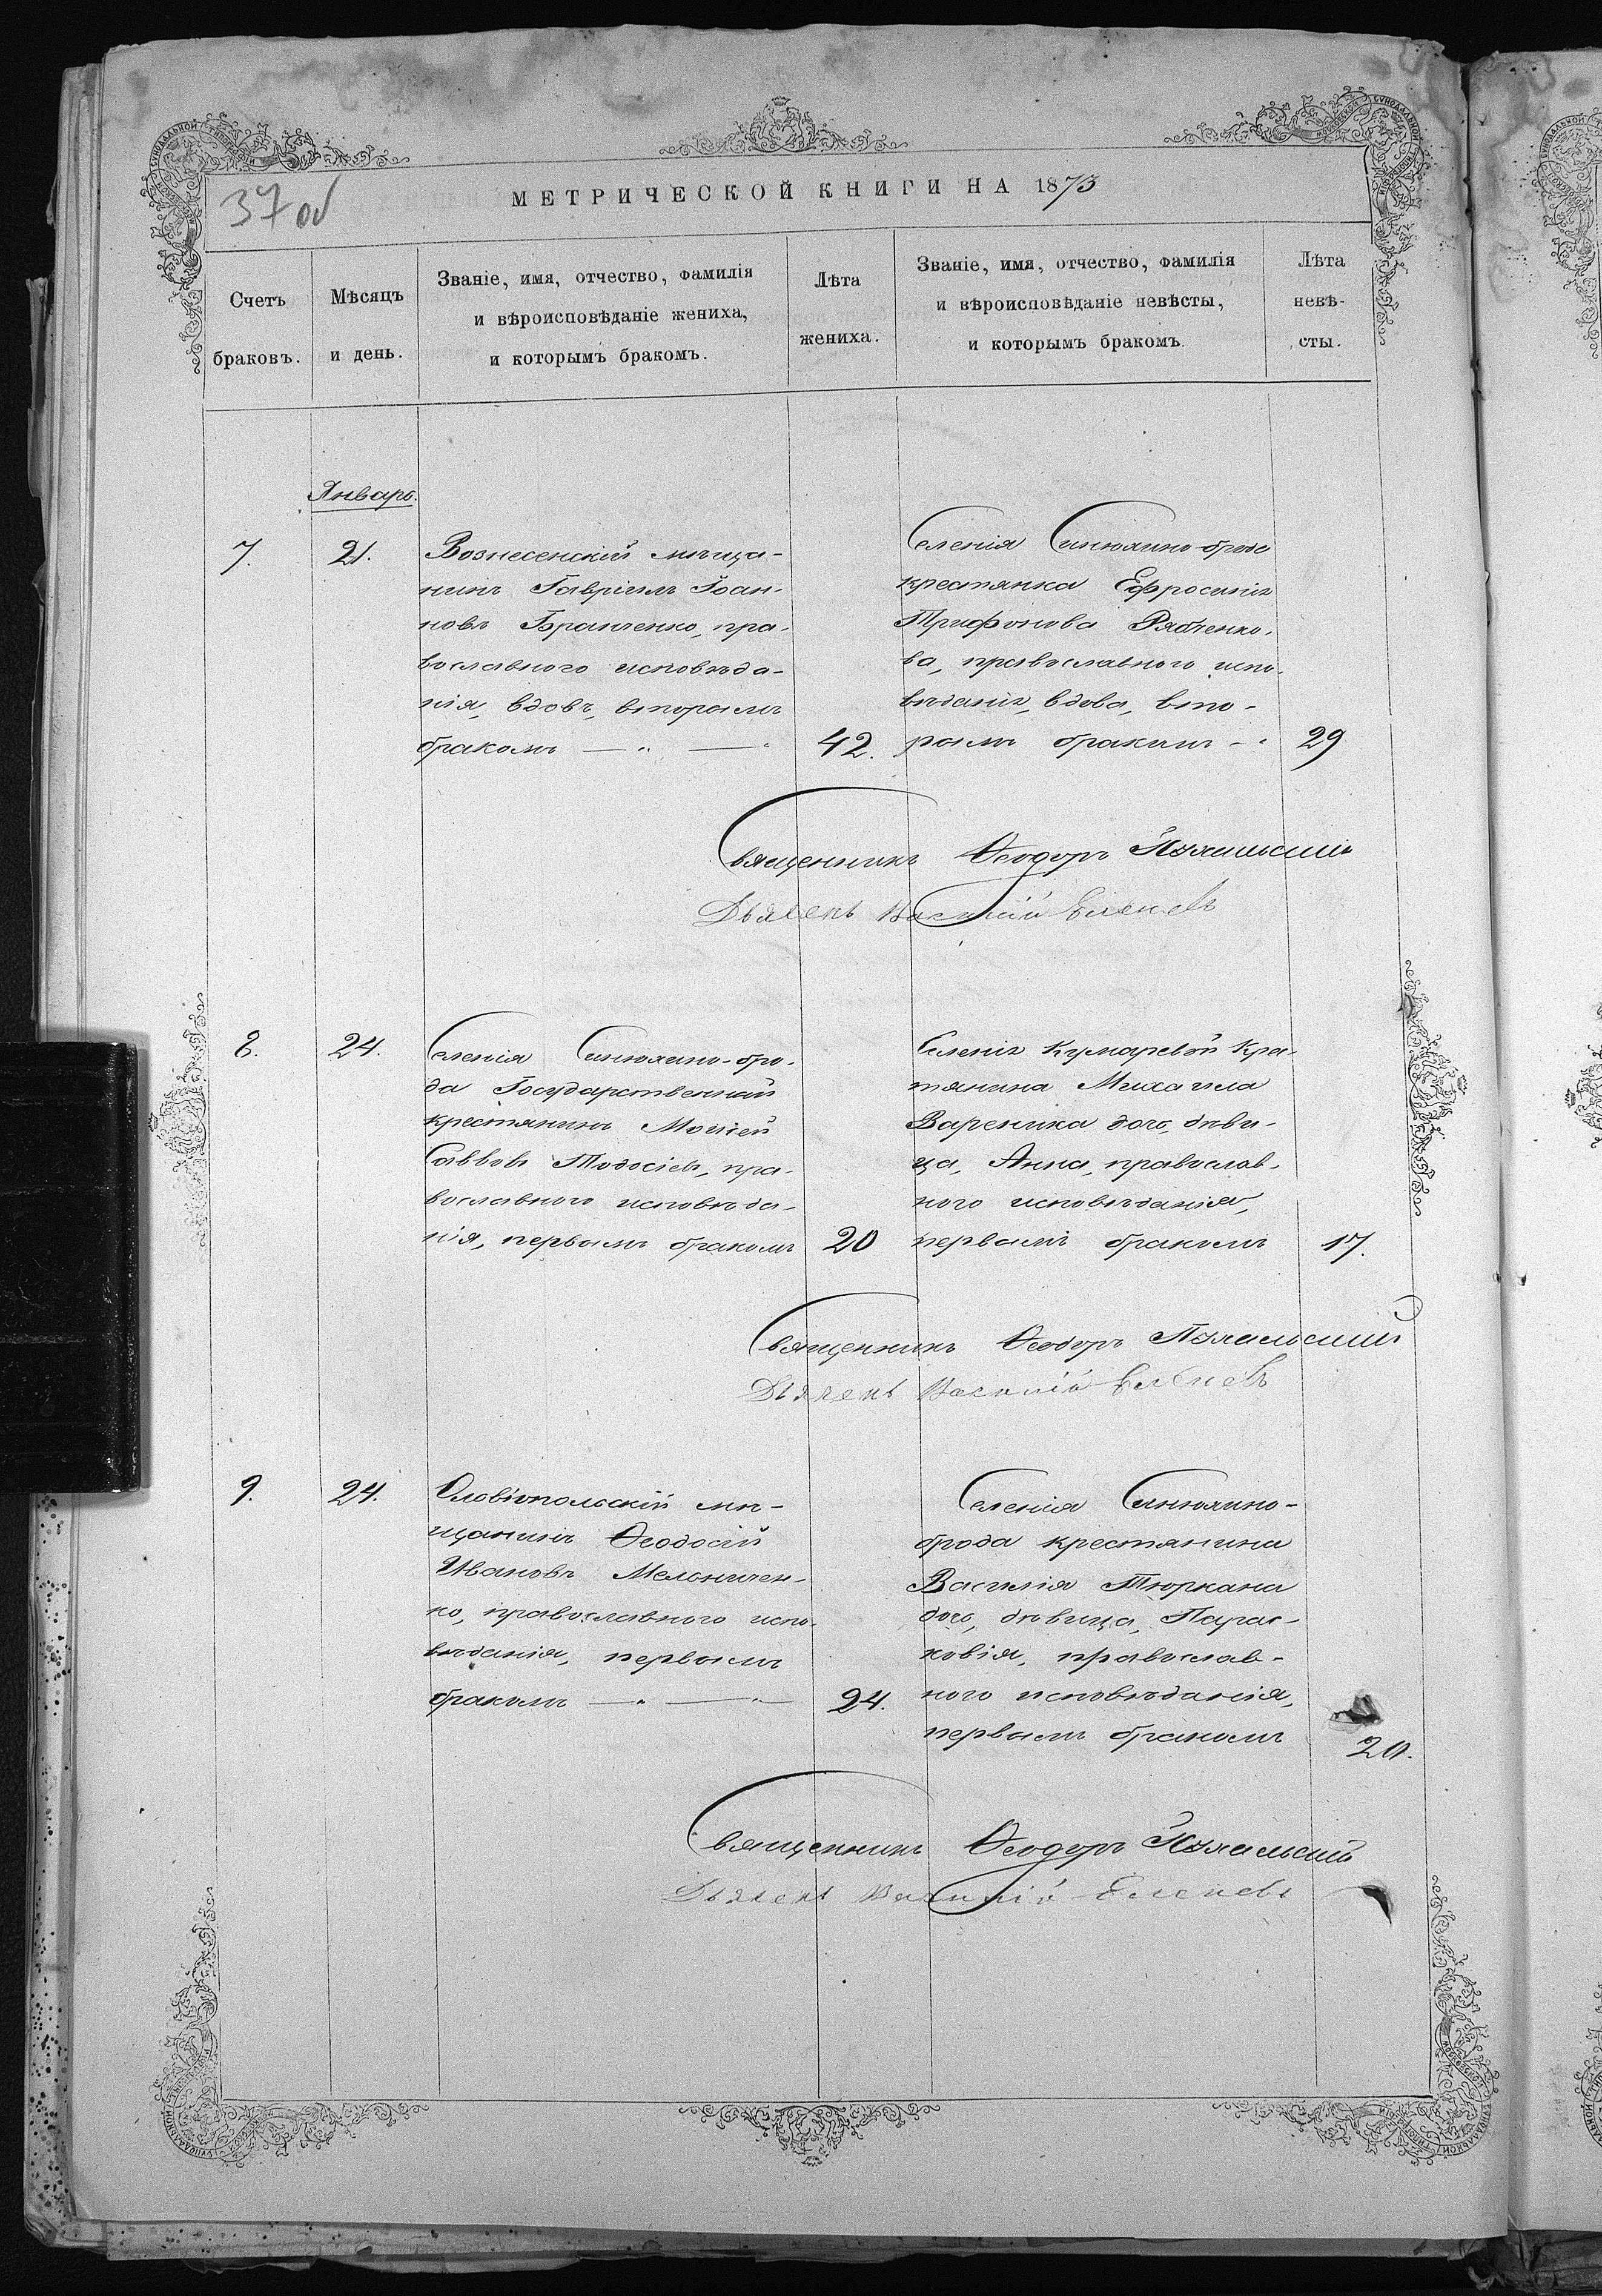 37 об
МЕТРИЧЕСКОЙ КНИГИ НА 1873
Счетъ браковъ.
Мѣсяцъ и день.
Званіе, имя, отчество, фамилія
и вѣроисповѣданіе жениха,
и которымъ бракомъ.
Лѣта
жениха.
Званіе, имя, отчество, фамилія
и вѣроисповѣданіе невѣсты,
и которымъ бракомъ.
Лѣта
невѣ-
сты.
Январь.
7.
21.
Вознесенскій мѣща-
нинъ Гавріилъ Іоан-
новъ Бранченко, пра-
вославнаго исповѣда-
нія, вдовъ, вторымъ
бракомъ — " — "
42.
Селенія Синюхино-брода
крестянка Ефросинія
Трифонова Рябченко-
ва, православнаго испо-
вѣданія, вдова, вто-
рымъ бракомъ - "
29
Священникъ Ѳеодоръ
Дьячекъ Василій Еленевъ
8.
24.
Селенія Синюхино-бро-
да Государственный
крестянинъ Моисей
Саввовъ Тодосіевъ, пра-
вославнаго исповѣда-
нія, первымъ бракомъ
20
Селенія Кумаревой Кре-
тянина Михаила
Вареника дочь, дѣви-
ца, Анна, православ-
ного исповѣданія,
первымъ бракомъ
17.
Священникъ Ѳеодоръ
Дьячекъ Василій Еленевъ
9.
24.
Олвіопольскій мѣ-
щанинъ Ѳеодосій
Ивановъ Мельничен-
ко, православнаго испо-
вѣданія, первымъ
бракомъ — " — "
24.
Селенія Синюхино-
брода крестянина
Василія Тюркана
дочь, дѣвица, Парас-
ковія, православ-
ного исповѣданія,
первымъ бракомъ
20.
Священникъ Ѳеодоръ
Дьячекъ Василій Еленевъ